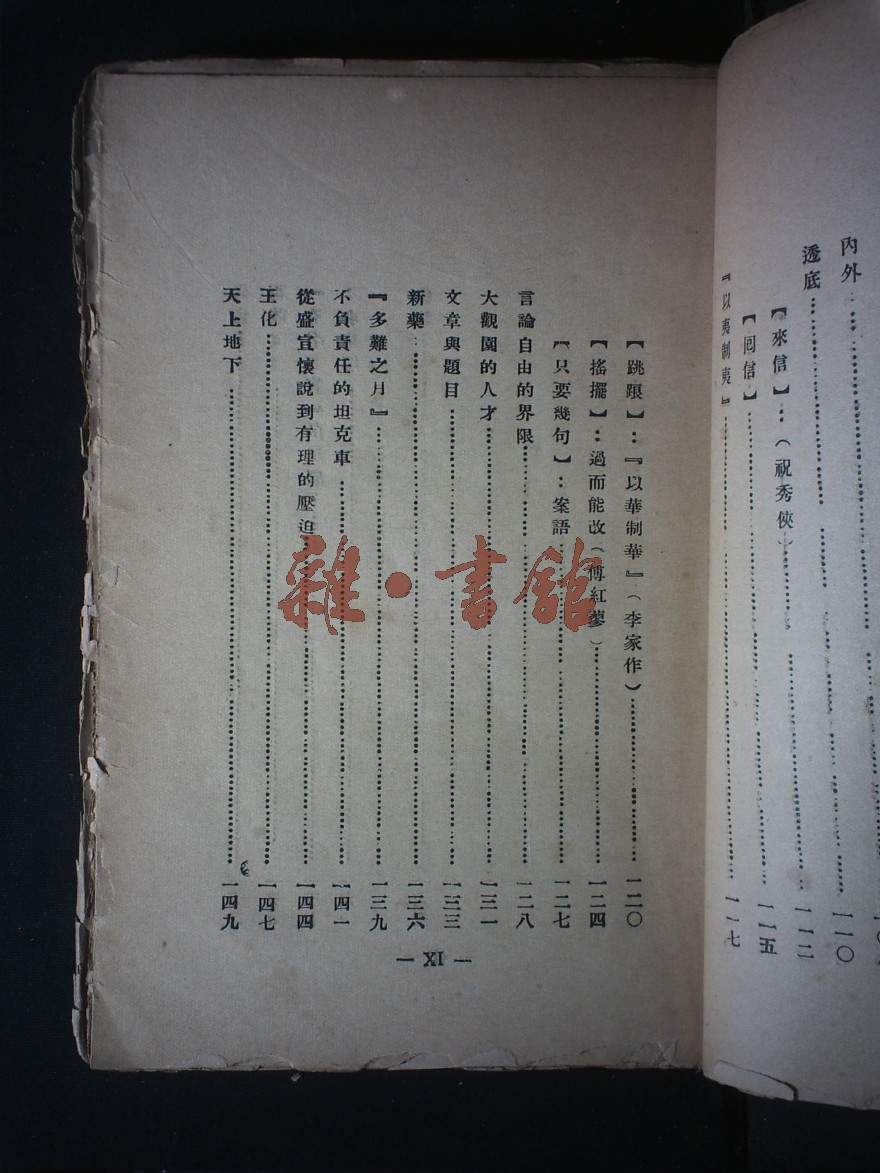 內外……一一〇
透底……一一二
【來信】：（祝秀俠）……一一五
【囘信】
『以夷制夷』……一一七
【跳踉】：『以華制華』（李家作）……一二〇
【搖擺】：過而能改（傅紅蓼）……一二四
【只要幾句】：案語……一二七
言論自由的界限……一二八
大觀園的人才……一三一
文章與題目……一三三
新藥……一三六
『多難之月』……一三九
不負責任的坦克車……一四一
從盛宣懷說到有理的壓迫……一四四
王化……一四七
天上地下……一四九
— XI —
雜·書館